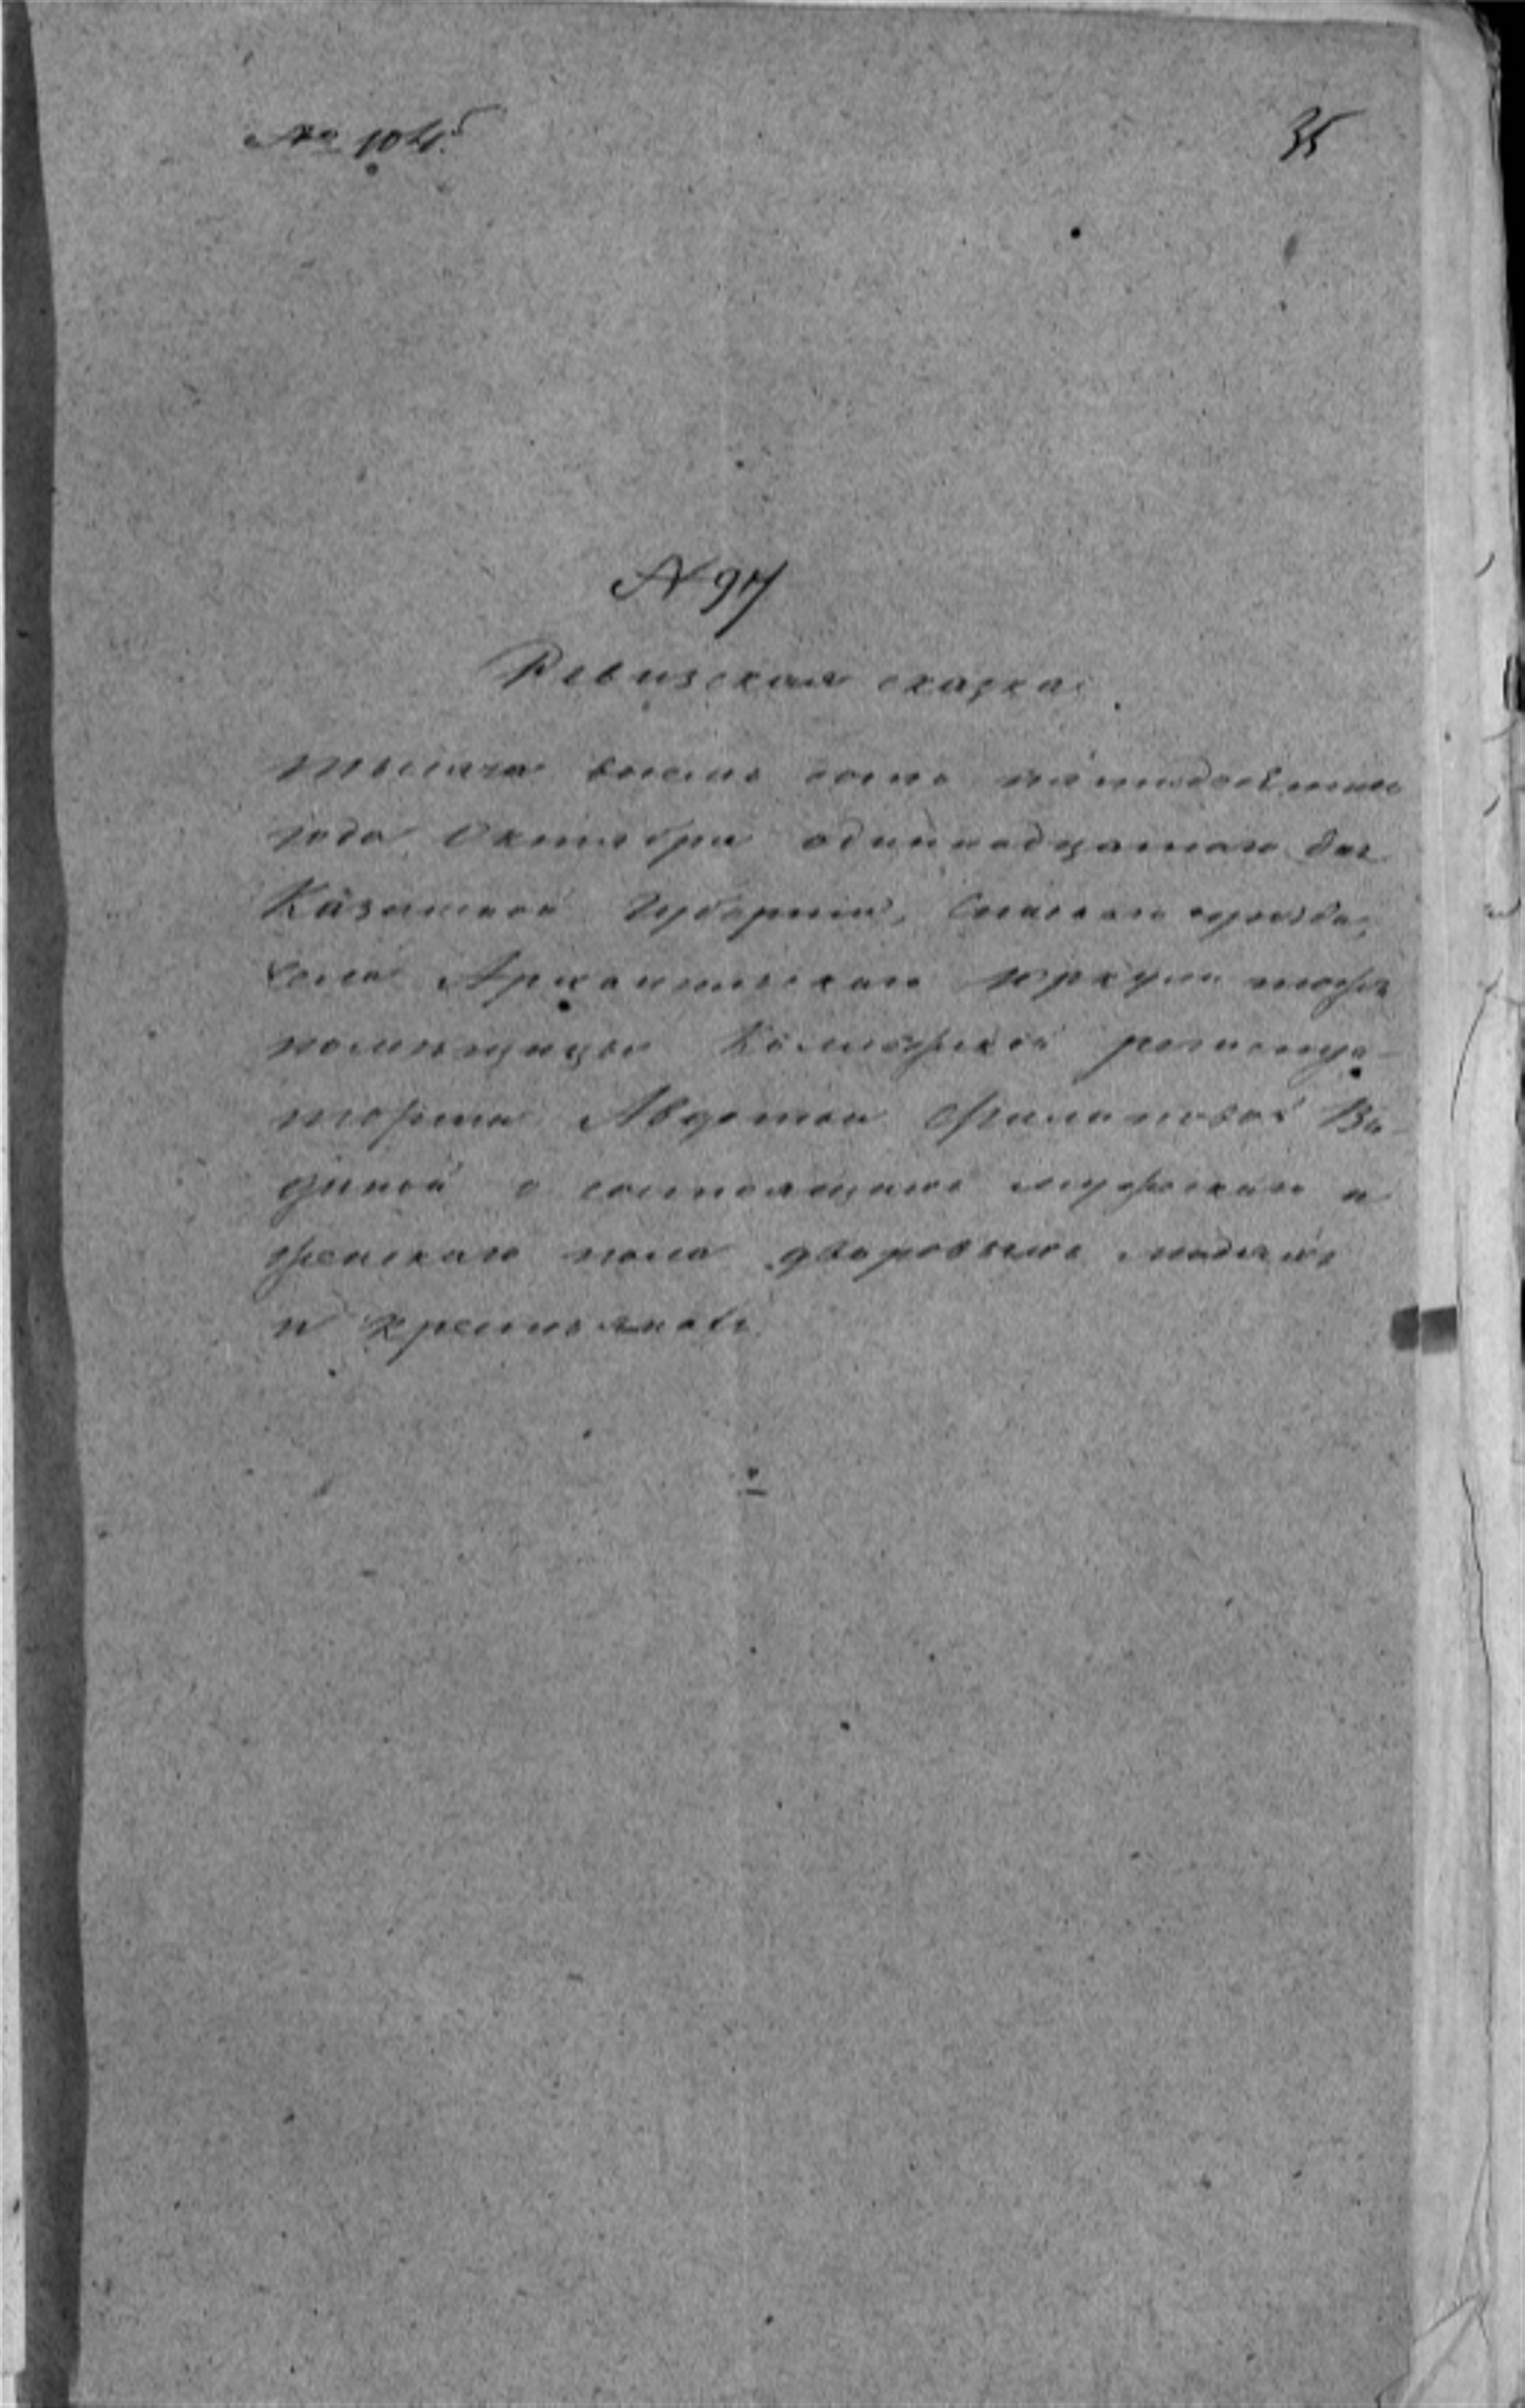 № 104. 35
№ 97
Ревизская сказка
тысяча восемь сотъ пятидесятаго
года Октября одиннадцатаго дня
Казанской Губернии, Спасскаго уезда,
села Архангельскаго Юркули тожъ
помещицы Коллежской регистра-
торши Авдотьи Филиповой
о состоящихъ мужескаго и
женскаго пола дворовыхъ людяхъ
и крестьянахъ.